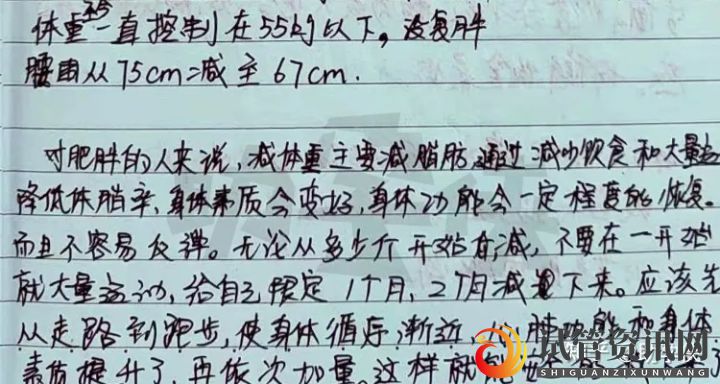 体重一直控制在55kg以下。没复胖
腰围从75cm减至67cm.
对肥胖的人来说,减体重主要减脂肪,通过减少饮食和大量运
降低体脂率,身体素质会变好,身体功能会一定程度的恢复。
而且不容易反弹。无论从多少斤开始有减,不要在一开始
就大量运动,给自己限定1个月,2个月减重下来。应该先
从走路到跑步,使身体循序渐近,功能和身体
素质提升了,再依次加量。这样就
试管资讯网
SHIGUANZIXUNWANG